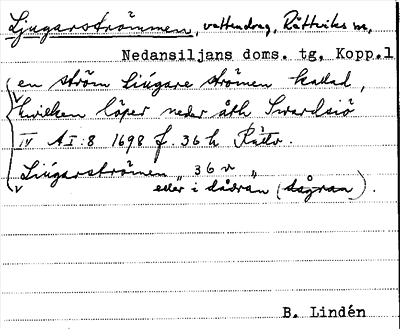 Ljugarströmmen, vattendrag, Rättviks sn,
Nedansiljans doms. tg. Kopp.l
en ström Liúgare strömen kallad,
hwilken löper neder åth Swardsiö
IV AI:8 1698 f. 36 h Rättv.
Liúgarströmen " 36 v "
eller i dådran (dågran).
B. Lindén